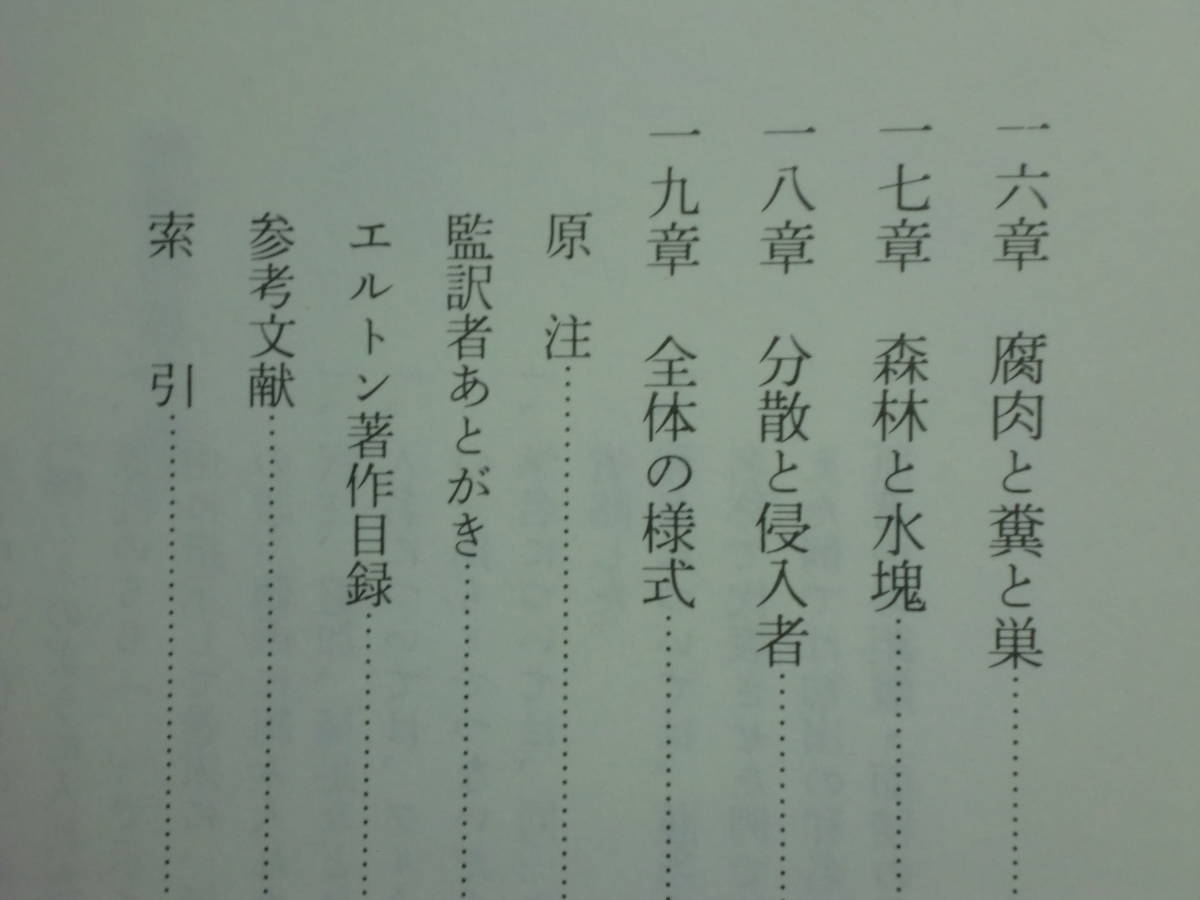 一六章 腐肉と糞と巣……………
一七章 森林と水塊……………
一八章 分散と侵入者……………
一九章 全体の様式……………
原注……………
監訳者あとがき……………
エルトン著作目録……………
参考文献……………
索引……………